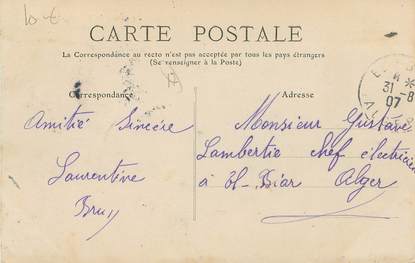 CARTE POSTALE
La Correspondance au recto n'est pas acceptée par tous les pays étrangers
(Se renseigner à la Poste)
Correspondance
Adresse
31-8
07
Amitié Sincère
Laurentine
Monsieur Gustave
Lambertie chef électricien
à El-Biar Alger